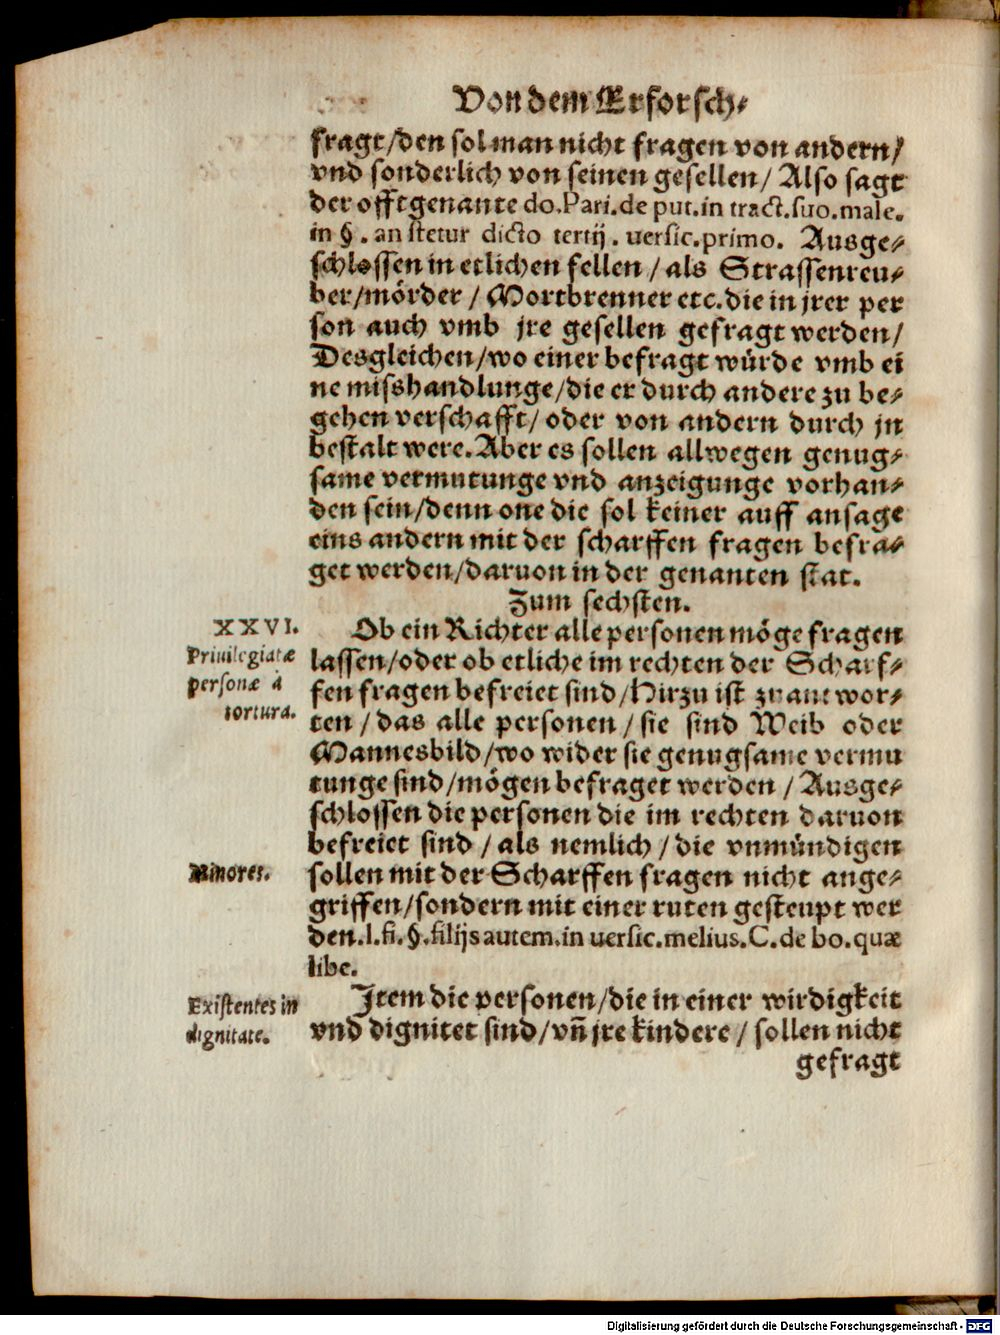 Von dem Erforsch⸗
fragt/den sol man nicht fragen von andern/
vnd sonderlich von seinen gesellen/ Also sagt
der offtgenante do.Pari.de put.in tract.suo.male.
in §. an stetur dicto tertij. uersic.primo. Ausge⸗
schlossen in etlichen fellen/als Strassenreu⸗
ber/mörder/Mortbrenner etc.die in jrer per
son auch vmb jre gesellen gefragt werden/
Desgleichen/wo einer befragt würde vmb ei
ne misshandlunge/die er durch andere zu be⸗
gehen verschafft/oder von andern durch jn
bestalt were.Aber es sollen allwegen genug⸗
same vermutunge vnd anzeigunge vorhan⸗
den sein/denn one die sol keiner auff ansage
eins andern mit der scharffen fragen befra⸗
get werden/daruon in der genanten stat.
Zum sechsten.
XXVI.
Priuilegiatæ
personæ à
tortura.
Ob ein Richter alle personen möge fragen
lassen/oder ob etliche im rechten der Scharf⸗
fen fragen befreiet sind/Hirzu ist zu antwor⸗
ten/das alle personen/sie sind Weib oder
Mannesbild/wo wider sie genugsame vermu
tunge sind/mögen befraget werden/Ausge⸗
schlossen die personen die im rechten daruon
befreiet sind/als nemlich/die vnmündigen
Minores.
sollen mit der Scharffen fragen nicht ange⸗
griffen/sondern mit einer ruten gesteupt wer
den.l.fi.§.filijs autem.in uersic.melius.C.de bo.quæ
libe.
Existentes in
dignitate.
Item die personen/die in einer wirdigkeit
vnd dignitet sind/vñ jre kindere/sollen nicht
gefragt
Digitalisierung gefördert durch die Deutsche Forschungsgemeinschaft - DFG